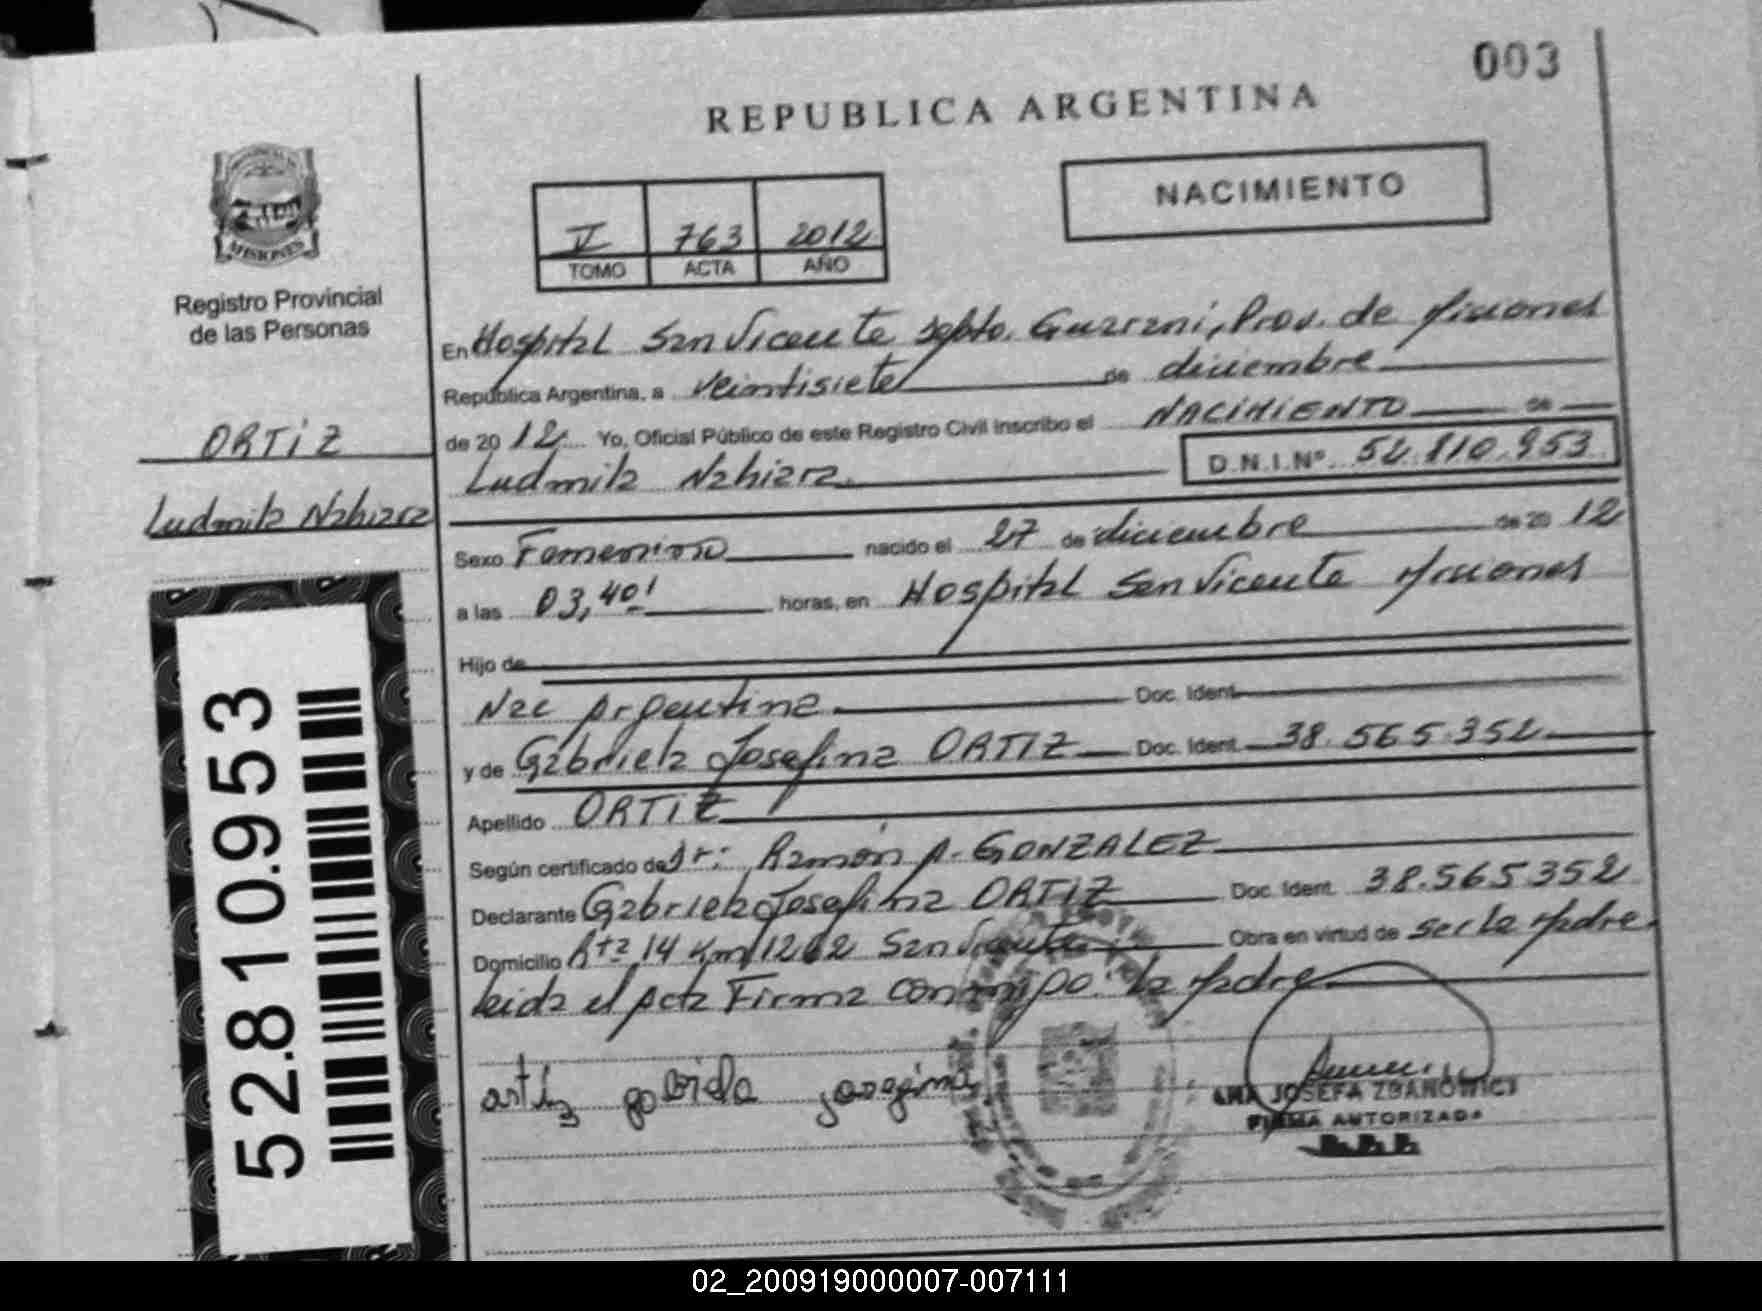 003
REPUBLICA ARGENTINA
NACIMIENTO
V 763 2012
TOMO ACTA AÑO
MISIONES
Registro Provincial
de las Personas
ORTIZ
Ludmila Nahiara
52.810.953
En Hospital San Vicente Depto. Guarani, Prov. de Misiones
República Argentina, a veintisiete de diciembre
de 2012 Yo, Oficial Público de este Registro Civil inscribo el NACIMIENTO de
Ludmila Nahiara D.N.I.Nº 52.810.953
Sexo Femenino nacido el 27 de diciembre de 2012
a las 03,40' horas, en Hospital San Vicente Misiones
Hijo de
Nac Argentina Doc. Ident.
y de Gabriela Josefina ORTIZ Doc. Ident. 38.565.352
Apellido ORTIZ
Según certificado de Dr: Ramón A. GONZALEZ
Declarante Gabriela Josefina ORTIZ Doc. Ident. 38.565.352
Domicilio Rta 14 Km 1262 San Vicente Obra en virtud de ser la Madre
leida el Acta Firma conmigo: la Madre
ortiz gabriela
ANA JOSEFA ZBANOWICZ
FIRMA AUTORIZADA
02_200919000007-007111